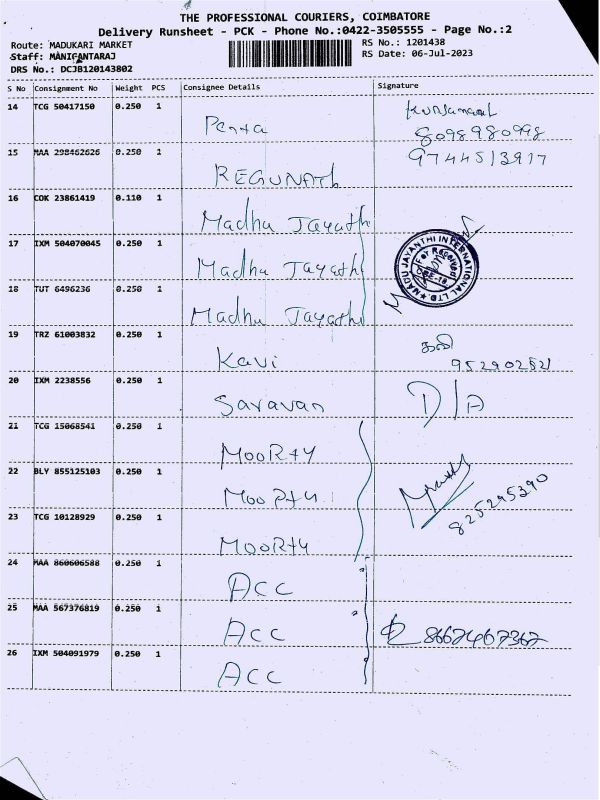 THE PROFESSIONAL COURIERS, COIMBATORE
Delivery Runsheet - PCK - Phone No.:0422-3505555 - Page No.:2
Route: MADUKARI MARKET RS No.: 1201438
Staff: MANIFANTARAJ RS Date: 06-Jul-2023
DRS No.: DCJB120143802
S No Consignment No Weight PCS Consignee Details Signature
14 TCG 50417150 0.250 1
8098980998
15 MAA 298462626 0.250 1 REGUNATH 9744513917
16 COK 23861419 0.110 1 Madhu Jayathi
17 IXM 504070045 0.250 1 Madhu Jayathi MADU JAYANTHI INTERNATIONAL LTD. For Received
18 TUT 6496236 0.250 1 Madhu Jayathi
19 TRZ 61003832 0.250 1 Kavi கவி
20 IXM 2238556 0.250 1 Saravan D/A
21 TCG 15068541 0.250 1 MOORTY
22 BLY 855125103 0.250 1 MOORTY 825295390
23 TCG 10128929 0.250 1 MOORTY
24 MAA 860606588 0.250 1 ACC
25 MAA 567376819 0.250 1 ACC 8667467367
26 IXM 504091979 0.250 1 ACC